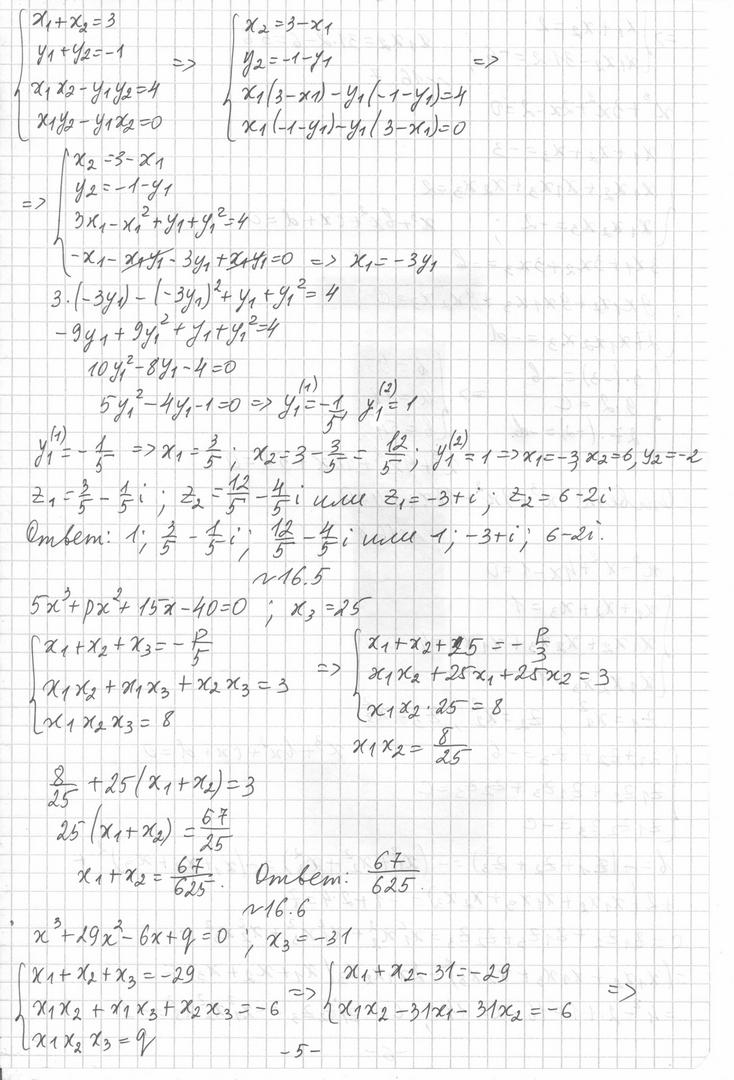 { x₁+x₂=3
y₁+y₂=-1
x₁x₂-y₁y₂=4
x₁y₂-y₁x₂=0
=> { x₂=3-x₁
y₂=-1-y₁
x₁(3-x₁)-y₁(-1-y₁)=4
x₁(-1-y₁)-y₁(3-x₁)=0
=>
=> { x₂=3-x₁
y₂=-1-y₁
3x₁-x₁²+y₁+y₁²=4
-x₁-x₁y₁-3y₁+x₁y₁=0 => x₁=-3y₁
3·(-3y₁)-(-3y₁)²+y₁+y₁²=4
-9y₁+9y₁²+y₁+y₁²=4
10y₁²-8y₁-4=0
5y₁²-4y₁-1=0 => y₁⁽¹⁾=-1/5, y₁⁽²⁾=1
y₁⁽¹⁾=-1/5 => x₁=3/5; x₂=3-3/5=12/5; y₁⁽²⁾=1 => x₁=-3, x₂=6, y₂=-2
z₁=3/5-1/5i; z₂=12/5-4/5i или z₁=-3+i; z₂=6-2i
Ответ: 1; 3/5-1/5i; 12/5-4/5i или 1; -3+i; 6-2i.
~16.5
5x³+px²+15x-40=0; x₃=25
{ x₁+x₂+x₃=-p/5
x₁x₂+x₁x₃+x₂x₃=3
x₁x₂x₃=8
=> { x₁+x₂+25=-p/3
x₁x₂+25x₁+25x₂=3
x₁x₂·25=8
x₁x₂=8/25
8/25+25(x₁+x₂)=3
25(x₁+x₂)=67/25
x₁+x₂=67/625. Ответ: 67/625.
~16.6
x³+29x²-6x+q=0; x₃=-31
{ x₁+x₂+x₃=-29
x₁x₂+x₁x₃+x₂x₃=-6
x₁x₂x₃=q
=> { x₁+x₂-31=-29
x₁x₂-31x₁-31x₂=-6
=>
-5-